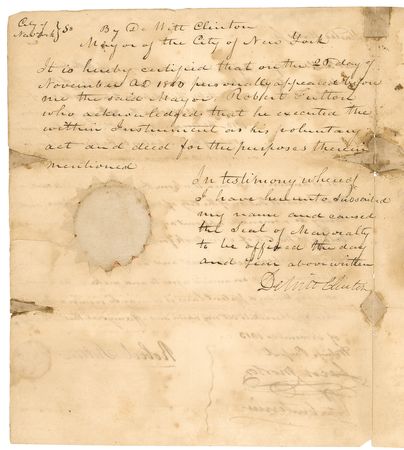 City of } ss
New York }
By De Witt Clinton
Mayor of the City of New York
It is hereby certified that on the 28 day of
November AD 1810 personally appeared before
me the said Mayor, Robert Fulton
who acknowledged that he executed the
within Instrument as his voluntary
act and deed for the purposes therein
mentioned
In testimony whereof
I have hereunto subscribed
my name and caused
the Seal of Mayoralty
to be affixed the day
and year above written
De Witt Clinton